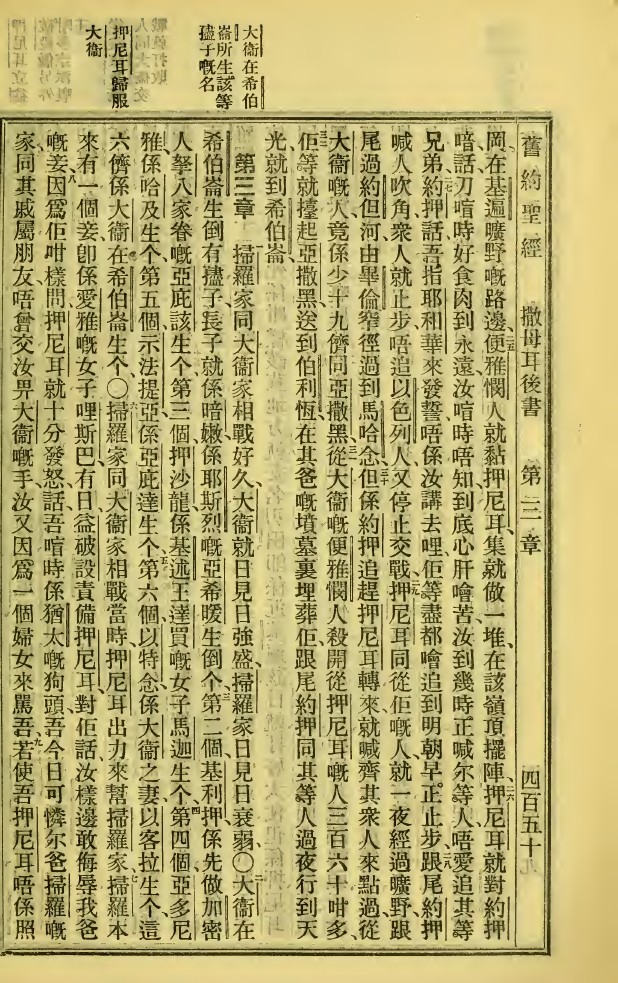 大衞在希伯
崙所生該等
孻子嘅名
押尼耳歸服
大衞
舊約聖經 撒母耳後書 第三章 四百五十
岡、在基遍曠野嘅路邊、二五便雅憫人就黏押尼耳、集就做一堆、在該嶺頂擺陣、二六押尼耳就對約押
喑話、刀喑時好食肉到永遠、汝喑時唔知到底心肝噲苦、汝到幾時正喊尔等人唔愛追其等
兄弟、二七約押話、吾指耶和華來發誓、唔係汝講去哩、佢等盡都噲追到明朝早正止步、二八跟尾約押
喊人吹角、衆人就止步、唔追以色列人、又停止交戰、二九押尼耳同從佢嘅人、就一夜經過曠野、跟
尾過約但河、由畢倫窄徑過到馬哈念、三十但係約押追趕押尼耳轉來、就喊齊其衆人來點過、從
大衞嘅人、竟係少十九儕同亞撒黑、三一從大衞嘅便雅憫人殺開從押尼耳嘅人三百六十咁多、
三二佢等就擡起亞撒黑、送到伯利恆、在其爸嘅墳墓裏埋葬佢、跟尾約押同其等人過夜行到天
光、就到希伯崙、
第三章 一掃羅家同大衞家相戰好久、大衞就日見日強盛、掃羅家日見日衰弱、〇二大衞在
希伯崙生倒有孻子、長子就係暗嫩、係耶斯烈嘅亞希暖生倒个、三第二個基利押、係先做加密
人拏八家眷嘅亞庇該生个、第三個押沙龍、係基述王達買嘅女子馬迦生个、四第四個亞多尼
雅、係哈及生个、第五個示法提亞、係亞庇達生个、五第六個以特念、係大衞之妻以客拉生个、這
六儕係大衞在希伯崙生个、〇六掃羅家同大衞家相戰當時、押尼耳出力來幫掃羅家、七掃羅本
來有一個妾、卽係愛雅嘅女子哩斯巴、有日益破設責備押尼耳、對佢話、汝樣邊敢侮辱我爸
嘅妾、八因爲佢咁樣問、押尼耳就十分發怒話、吾喑時係猶太嘅狗頭、吾今日可憐尔爸掃羅嘅
家、同其戚屬朋友、唔曾交汝畀大衞嘅手、汝又因爲一個婦女來罵吾、九若使吾押尼耳唔係照